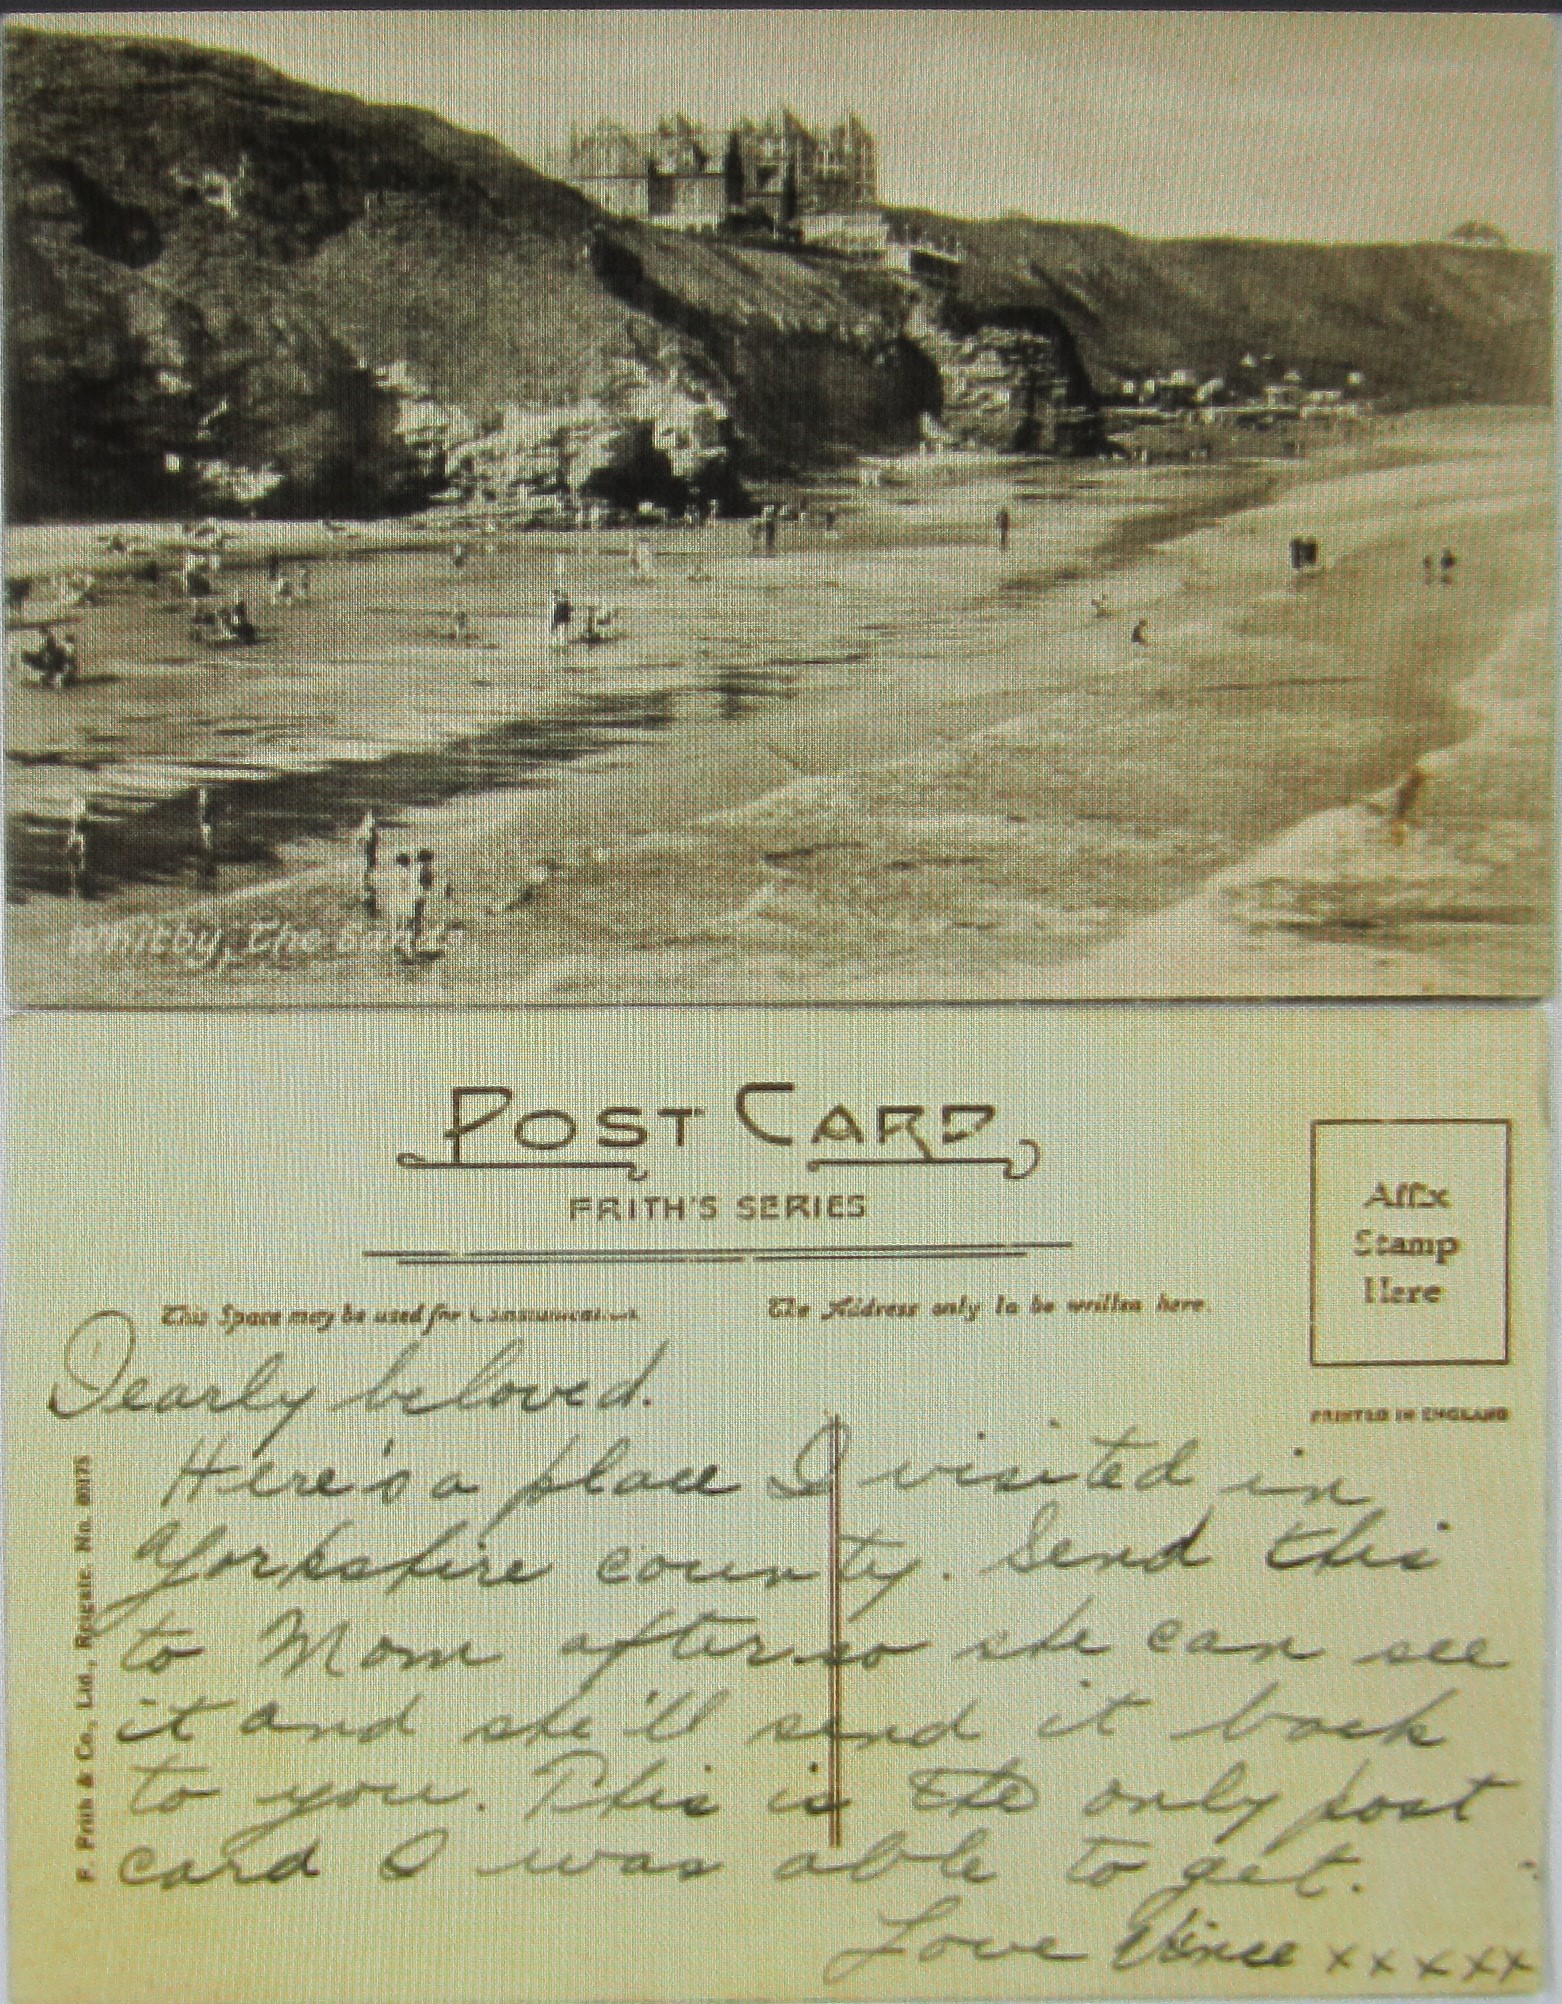 Whitby, The Sands
POST CARD
FRITH'S SERIES
This Space may be used for Communication
The Address only to be written here.
Affix
Stamp
Here
PRINTED IN ENGLAND
F. Frith & Co., Ltd., Reigate. No.
Dearly beloved.
Here's a place I visited in
Yorkshire county. Send this
to Mom after so she can see
it and she'll send it back
to you. This is the only post
card I was able to get.
Love Vince xxxxx